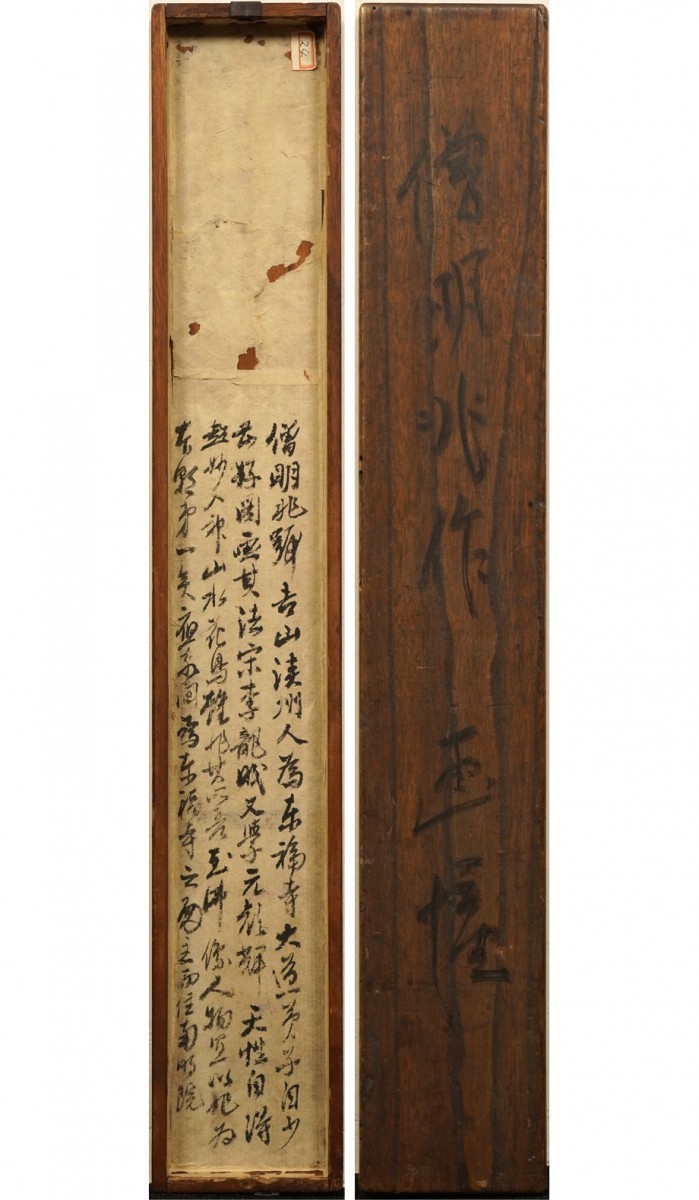 僧明兆作
24
僧明兆號吉山淡州人為東福寺大道弟子自少
好圖画其法宋李龍眠又學元顔輝 天性自得
超妙入神山水花鳥雖非其所善至佛像人物宜以兆為
本朝第一矣應永間為東福寺之殿主而住南明院